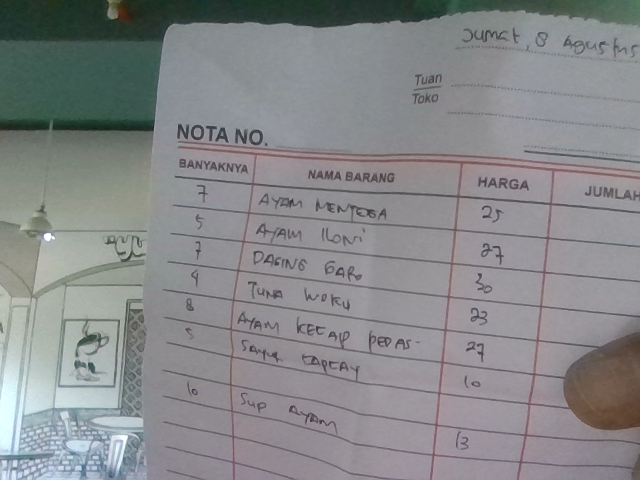 Jumat, 8 Agustus
Tuan
Toko
NOTA NO.
BANYAKNYA NAMA BARANG HARGA JUMLAH
7 AYAM MENTEGA 25
5 AYAM 27
7 DAGING GARO 30
4 TUNA WOKU 23
8 AYAM KECAP PEDAS 27
5 SAYUR CAPCAY 10
10 SUP AYAM 13